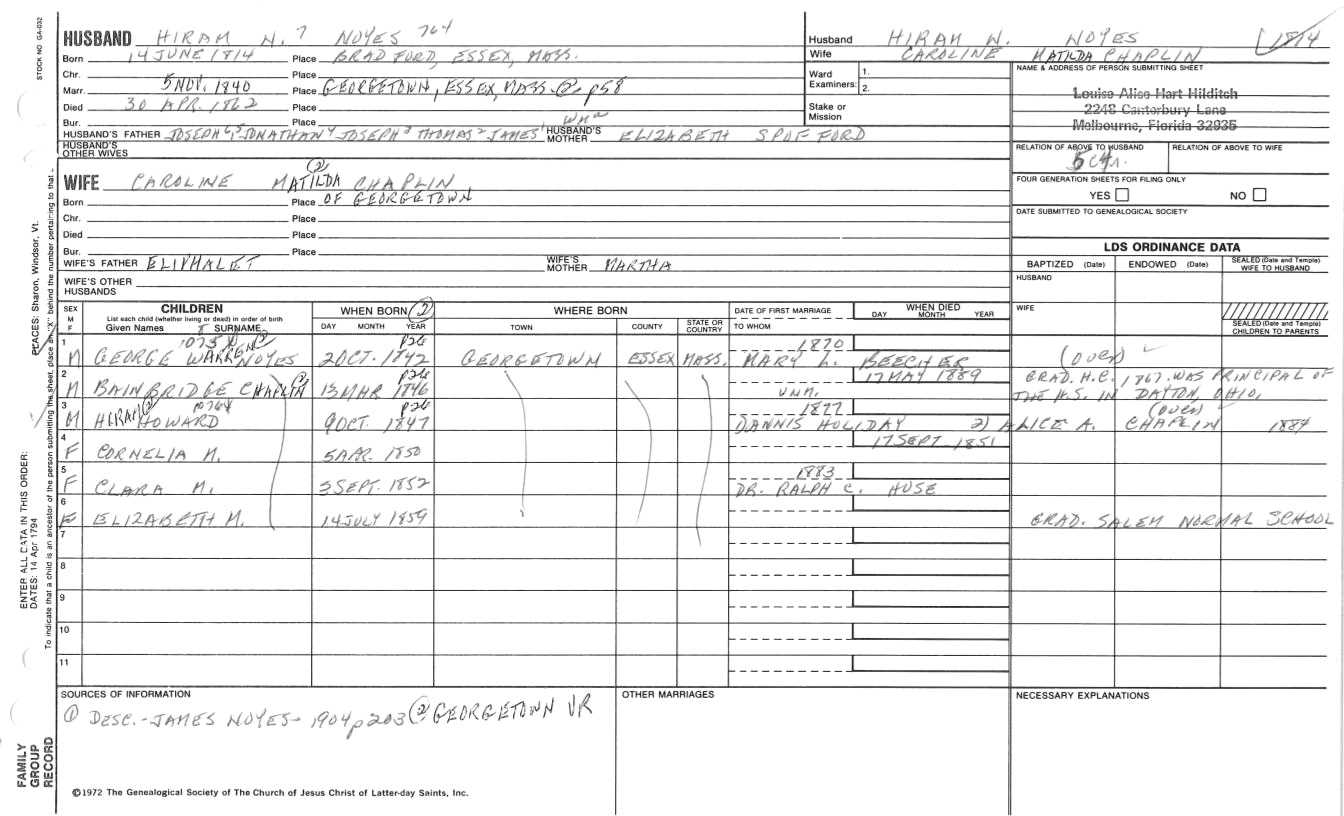 STOCK NO GA-032
HUSBAND HIRAM N. 7 NOYES 764
Born 14 JUNE 1814 Place BRADFORD, ESSEX, MASS.
Chr. Place
Marr. 5 NOV. 1840 Place GEORGETOWN, ESSEX, MASS. (2) p58
Died 30 APR. 1862 Place
Bur. Place
HUSBAND'S FATHER JOSEPH 6, 5 JONATHAN 4 JOSEPH 3 THOMAS 2 JAMES 1 HUSBAND'S MOTHER ELIZABETH SPOFFORD
HUSBAND'S OTHER WIVES
Husband HIRAM W. NOYES 1814
Wife CAROLINE MATILDA CHAPLIN
Ward Examiners: 1. 2.
Stake or Mission
NAME & ADDRESS OF PERSON SUBMITTING SHEET
Louise Alise Hart Hilditch
2248 Canterbury Lane
Melbourne, Florida 32935
RELATION OF ABOVE TO HUSBAND RELATION OF ABOVE TO WIFE
FOUR GENERATION SHEETS FOR FILING ONLY
YES NO
DATE SUBMITTED TO GENEALOGICAL SOCIETY
WIFE CAROLINE MATILDA (2) CHAPLIN
Born Place OF GEORGETOWN
Chr. Place
Died Place
Bur. Place
WIFE'S FATHER ELIPHALET WIFE'S MOTHER MARTHA
WIFE'S OTHER HUSBANDS
LDS ORDINANCE DATA
BAPTIZED (Date) ENDOWED (Date) SEALED (Date and Temple) WIFE TO HUSBAND
HUSBAND
WIFE
SEALED (Date and Temple) CHILDREN TO PARENTS
SEX M F CHILDREN WHEN BORN (2) WHERE BORN DATE OF FIRST MARRIAGE WHEN DIED
List each child (whether living or dead) in order of birth
Given Names SURNAME DAY MONTH YEAR TOWN COUNTY STATE OR COUNTRY TO WHOM DAY MONTH YEAR
1 M GEORGE WARREN NOYES 2 OCT. 1842 p26 GEORGETOWN ESSEX MASS. 1870 MARY L. BEECHER (over)
2 M BAINBRIDGE CHAPLIN 13 MAR 1846 p26 unm. 17 MAY 1889 GRAD. H.C., 1867. WAS PRINCIPAL OF
THE H.S. IN DAYTON, OHIO,
3 M HIRAM (2) HOWARD 9 OCT. 1847 p26 1877 DANNIS HOLIDAY 2) ALICE A. CHAPLIN (over) 1884
4 F CORNELIA M. 5 APR. 1850 17 SEPT 1851
5 F CLARA M. 3 SEPT. 1852 1883 DR. RALPH C. HUSE
6 F ELIZABETH M. 14 JULY 1859 GRAD. SALEM NORMAL SCHOOL
7
8
9
10
11
SOURCES OF INFORMATION OTHER MARRIAGES NECESSARY EXPLANATIONS
(1) DESC.-JAMES NOYES- 1904 p203 (2) GEORGETOWN VR
©1972 The Genealogical Society of The Church of Jesus Christ of Latter-day Saints, Inc.
FAMILY GROUP RECORD
ENTER ALL DATA IN THIS ORDER:
DATES: 14 Apr 1794
PLACES: Sharon, Windsor, Vt.
To indicate that a child is an ancestor of the person submitting the sheet, place an "X" behind the number pertaining to that